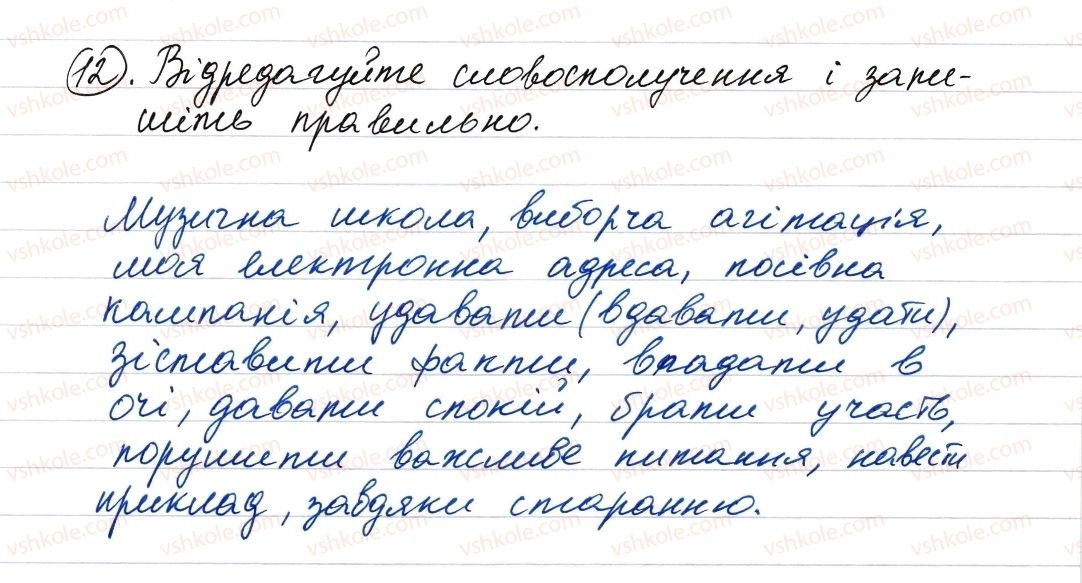 12. Відредагуйте словосполучення і запи-
шіть правильно.
Музична школа, виборча агітація,
моя електронна адреса, посівна
кампанія, удавати (вдавати, удати),
зіставити факти, впадати в
очі, давати спокій, брати участь,
порушити важливе питання, навести
приклад, завдяки старанню.